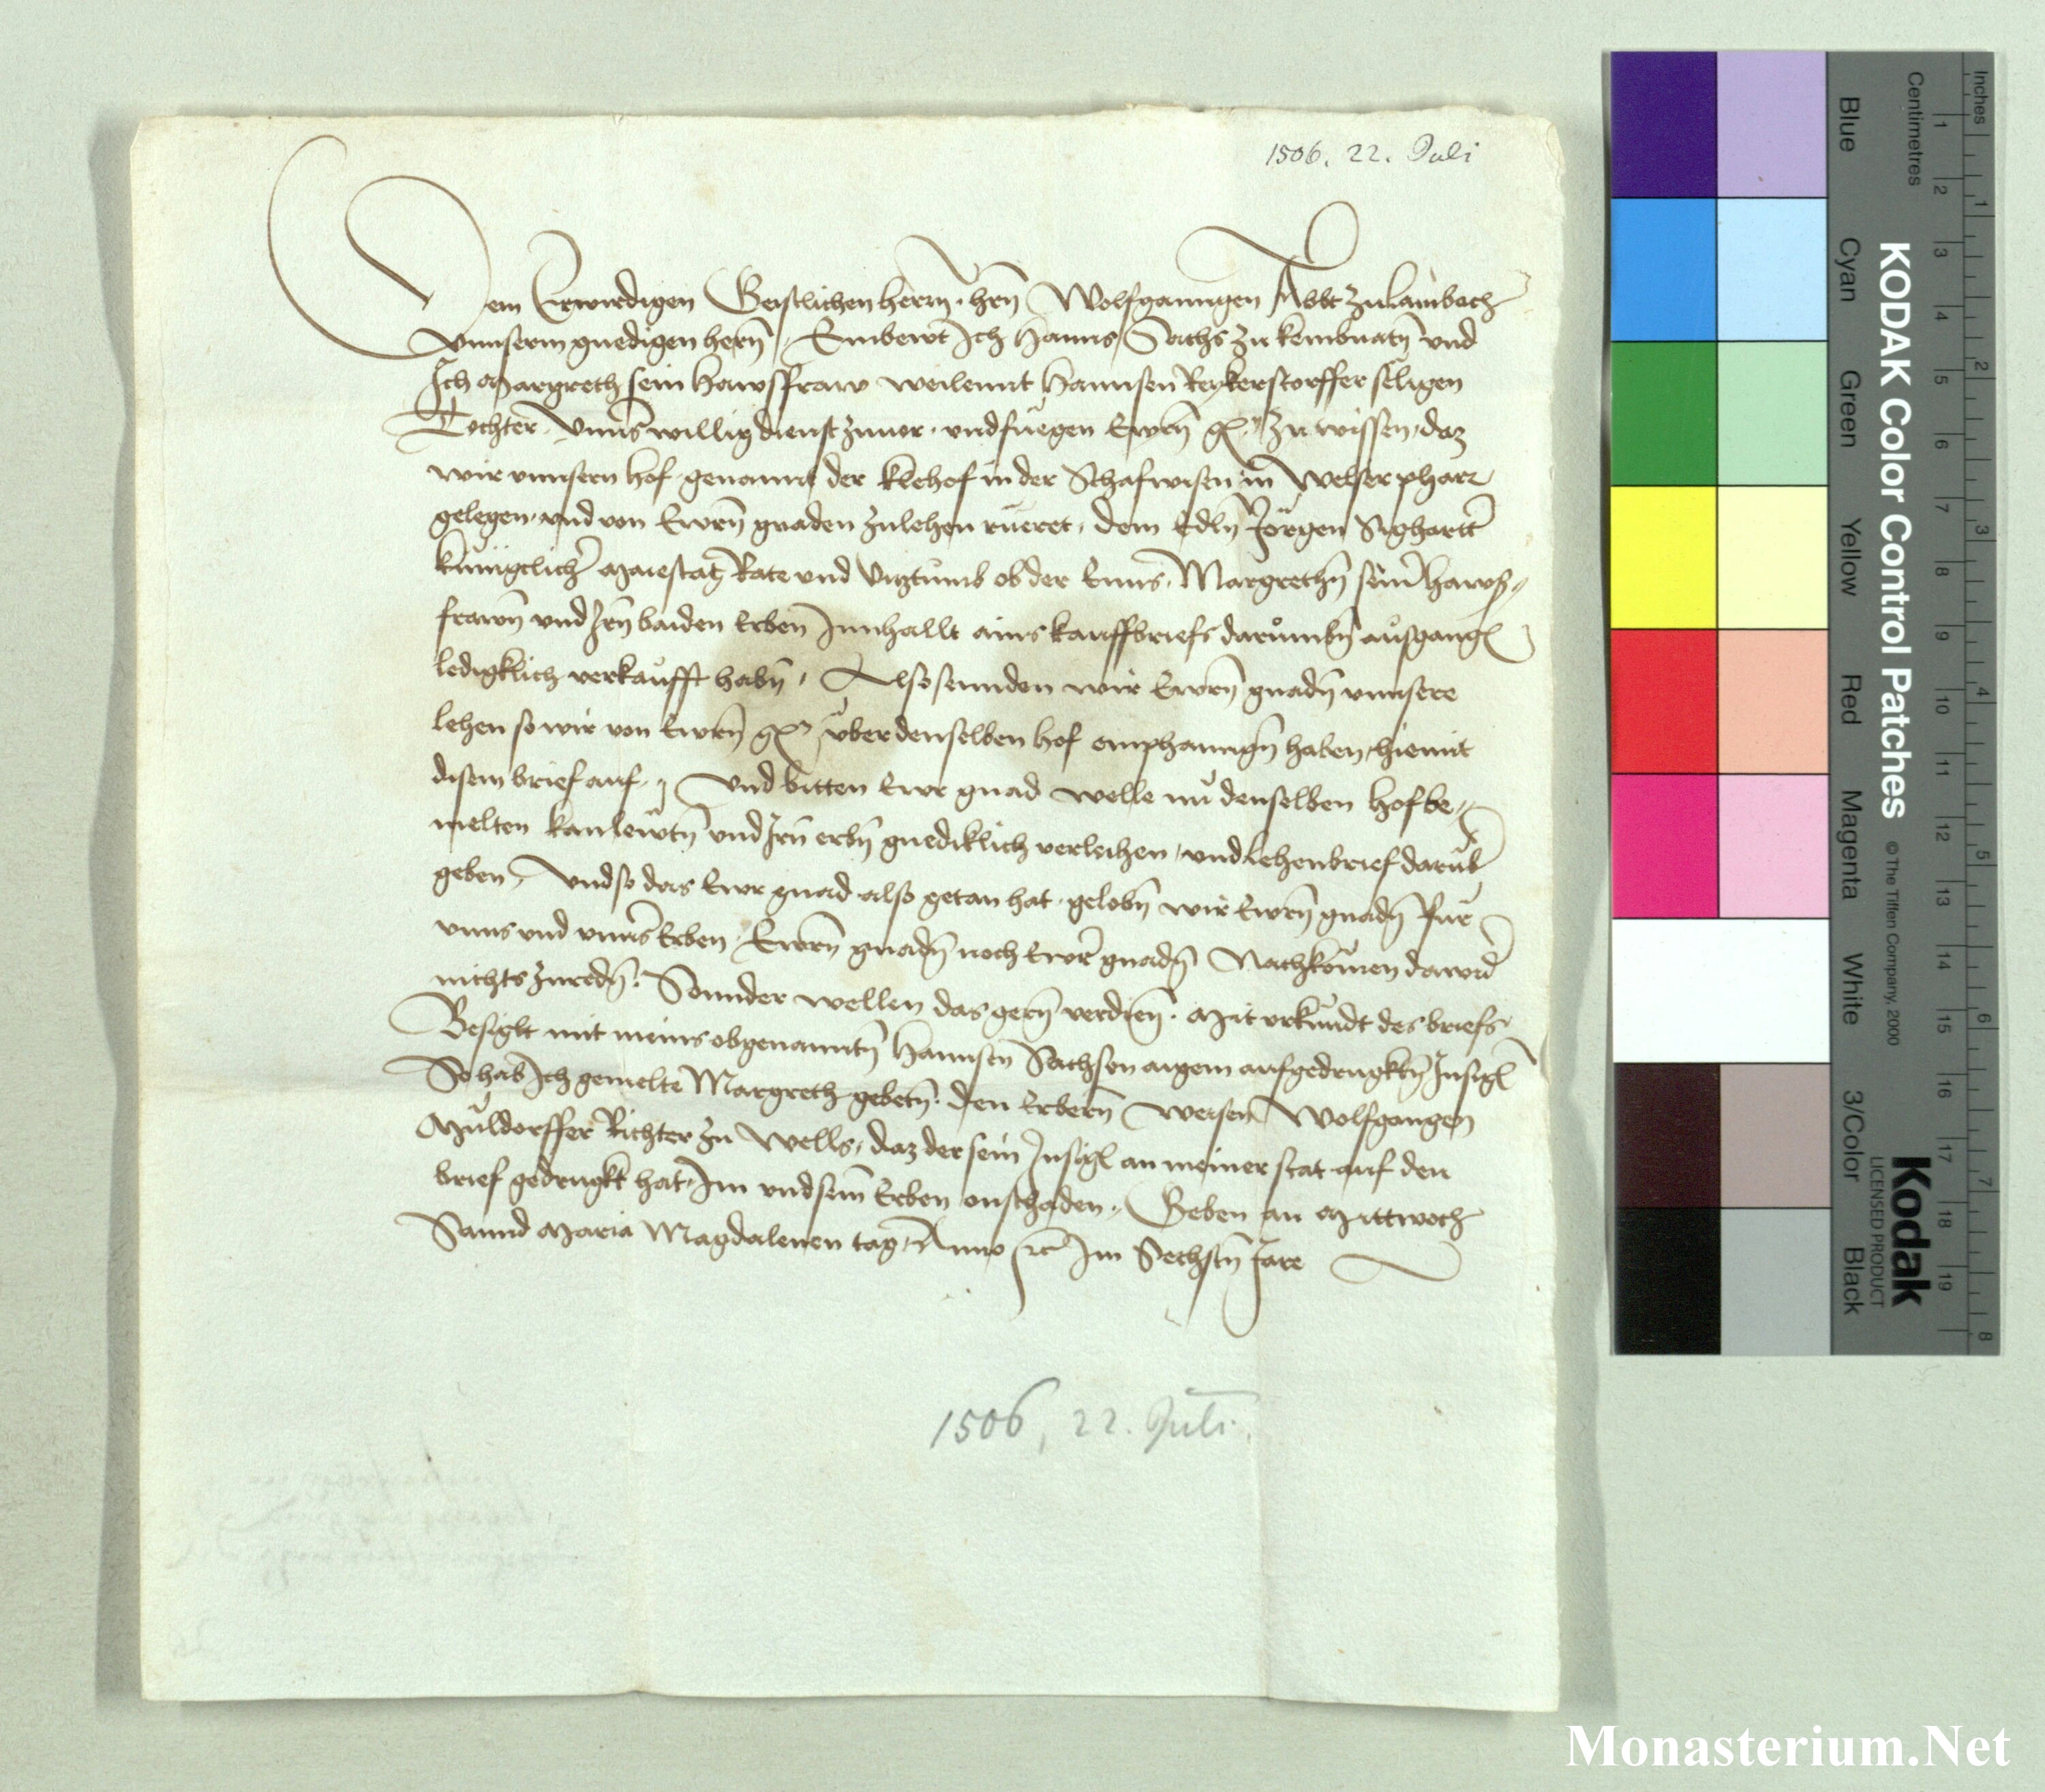 1506. 22. Juli
Dem Erwirdigen Geistlichen herrn hrn Wolfganngen Abbt zu Lambach
vnnserm gnedigen hern Embewt Ich Hanns Sachs zu kembnatn vnd
Ich Margreth sein hawsfraw weilennt Hannsen Reykerstorffer seligen
Tochter vnns willig dienst zuuor vnd fuegen Ewrn g. zu wissen daz
wir vnnsern hof genannt der klehof in der Schafwisen in Welser pharr
gelegen vnd von Ewrn gnaden zulehen rueret dem Edln Jorgen Sighartt
kuniglich Maiestat Rate vnd Vitztumb ob der Enns Margrethn sein hawß
frawn vnd Irn baiden Erben Innhallt ains kauffbriefs darumbn außgangen
ledigklich verkaufft habn Also sennden wir Ewrn gnadn vnnsere
lehen so wir von Ewrn g. vber denselben hof emphanngn haben hiemit
disem brief auf vnd bitten Ewr gnad welle nu denselben hof be
melten kauflewtn vnd Irn erbn gnediklich verleihen vnd lehenbrief darub
geben Vnd so das Ewr gnad also getan hat gelobn wir Ewrn gnadn fur
vnns vnd vnns Erben Ewrn gnadn noch Ewr gnadn Nachkomen dawid
nichts zuredn Sonnder wellen das gern verdien Mit vrkundt des briefs
Besiglt mit meins obgenanntn Hannsen Sachsen aigem aufgedrugktn Insigl
So hab Ich gemelte Margreth gebetn den Erbern weisen Wolfgangen
Muldorffer Richter zu Wells daz der sein Insigl an meiner stat auf den
brief gedrugkt hat Im vnd sein Erben onschaden Geben an Mittwoch
Sannd Maria Magdalenen tag Anno etc Im Sechstn Jare
1506, 22. Juli.
KODAK Color Control Patches
© The Tiffen Company, 2000
Kodak
LICENSED PRODUCT
Blue Cyan Green Yellow Red Magenta White 3/Color Black
Centimetres 1 2 3 4 5 6 7 8 9 10 11 12 13 14 15 16 17 18 19
Inches 1 2 3 4 5 6 7 8
Monasterium.Net